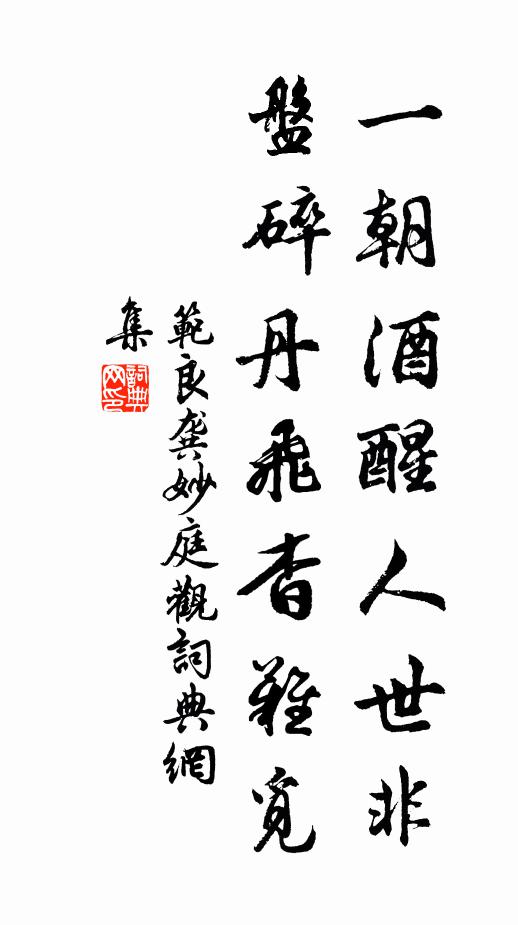 一朝酒醒人世非
盤碎丹飛杳難覓
範良龔妙庭觀詞典網
集
詞典网印